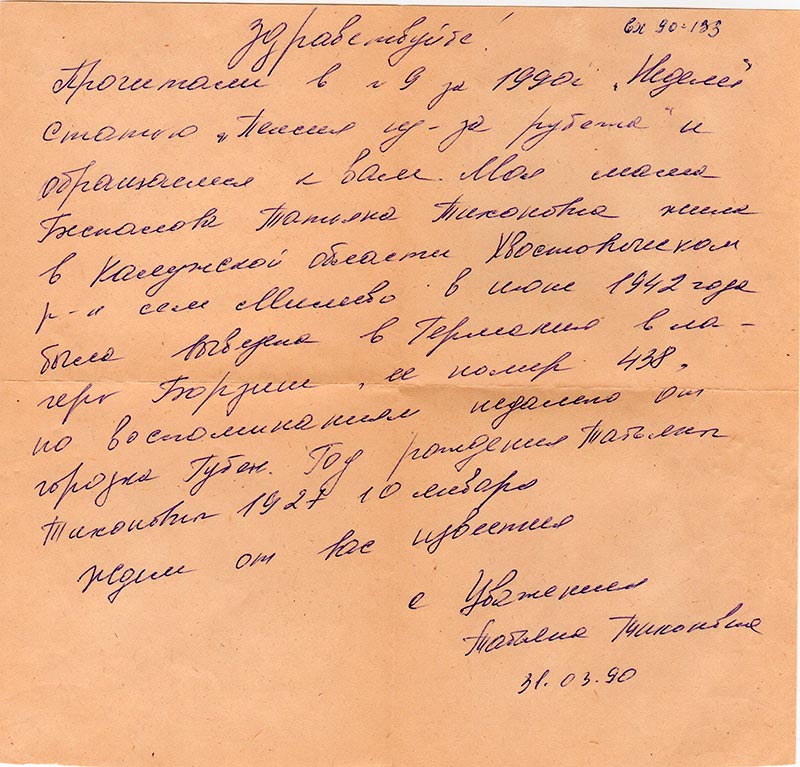 вх 90-133
Здравствуйте!
Прочитали в н 9 за 1990г „Неделя"
статью „Пенсия из-за рубежа" и
обращаемся к вам. Моя мама
Татьяна Тихоновна жила
в Калужской области Хвостовическом
р-н село Милеево в июне 1942 года
была вывезена в Германию в ла-
герь ее номер 438,
по воспоминаниям недалеко от
городка Губен. Год рождения Татьяны
Тихоновны 1927 10 января
Ждем от вас известия
с Уважением
Татьяна Тихоновна
31.03.90